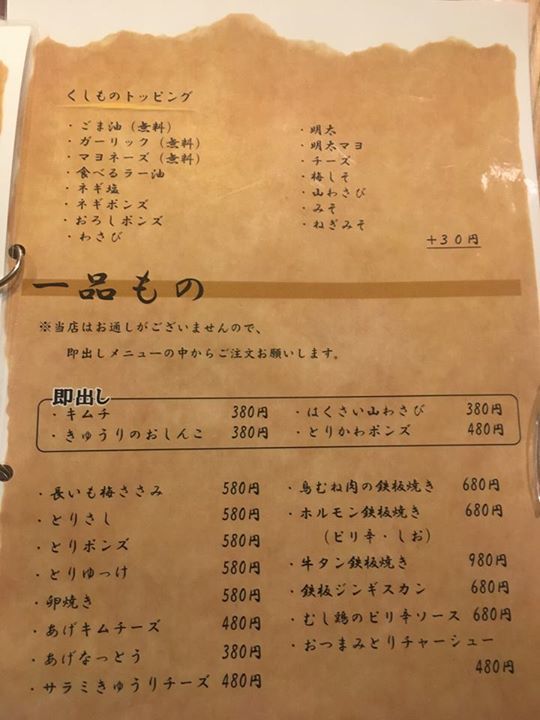 くしものトッピング
・ごま油（無料）
・ガーリック（無料）
・マヨネーズ（無料）
・食べるラー油
・ネギ塩
・ネギポンズ
・おろしポンズ
・わさび
・明太
・明太マヨ
・チーズ
・梅しそ
・山わさび
・みそ
・ねぎみそ
+30円
一品もの
※当店はお通しがございませんので、
即出しメニューの中からご注文お願いします。
即出し
・キムチ 380円
・きゅうりのおしんこ 380円
・はくさい山わさび 380円
・とりかわポンズ 480円
・長いも梅ささみ 580円
・とりさし 580円
・とりポンズ 580円
・とりゆっけ 580円
・卵焼き 580円
・あげキムチーズ 480円
・あげなっとう 380円
・サラミきゅうりチーズ 480円
・鳥むね肉の鉄板焼き 680円
・ホルモン鉄板焼き 680円
（ピリ辛・しお）
・牛タン鉄板焼き 980円
・鉄板ジンギスカン 680円
・むし鶏のピリ辛ソース 680円
・おつまみとりチャーシュー
480円